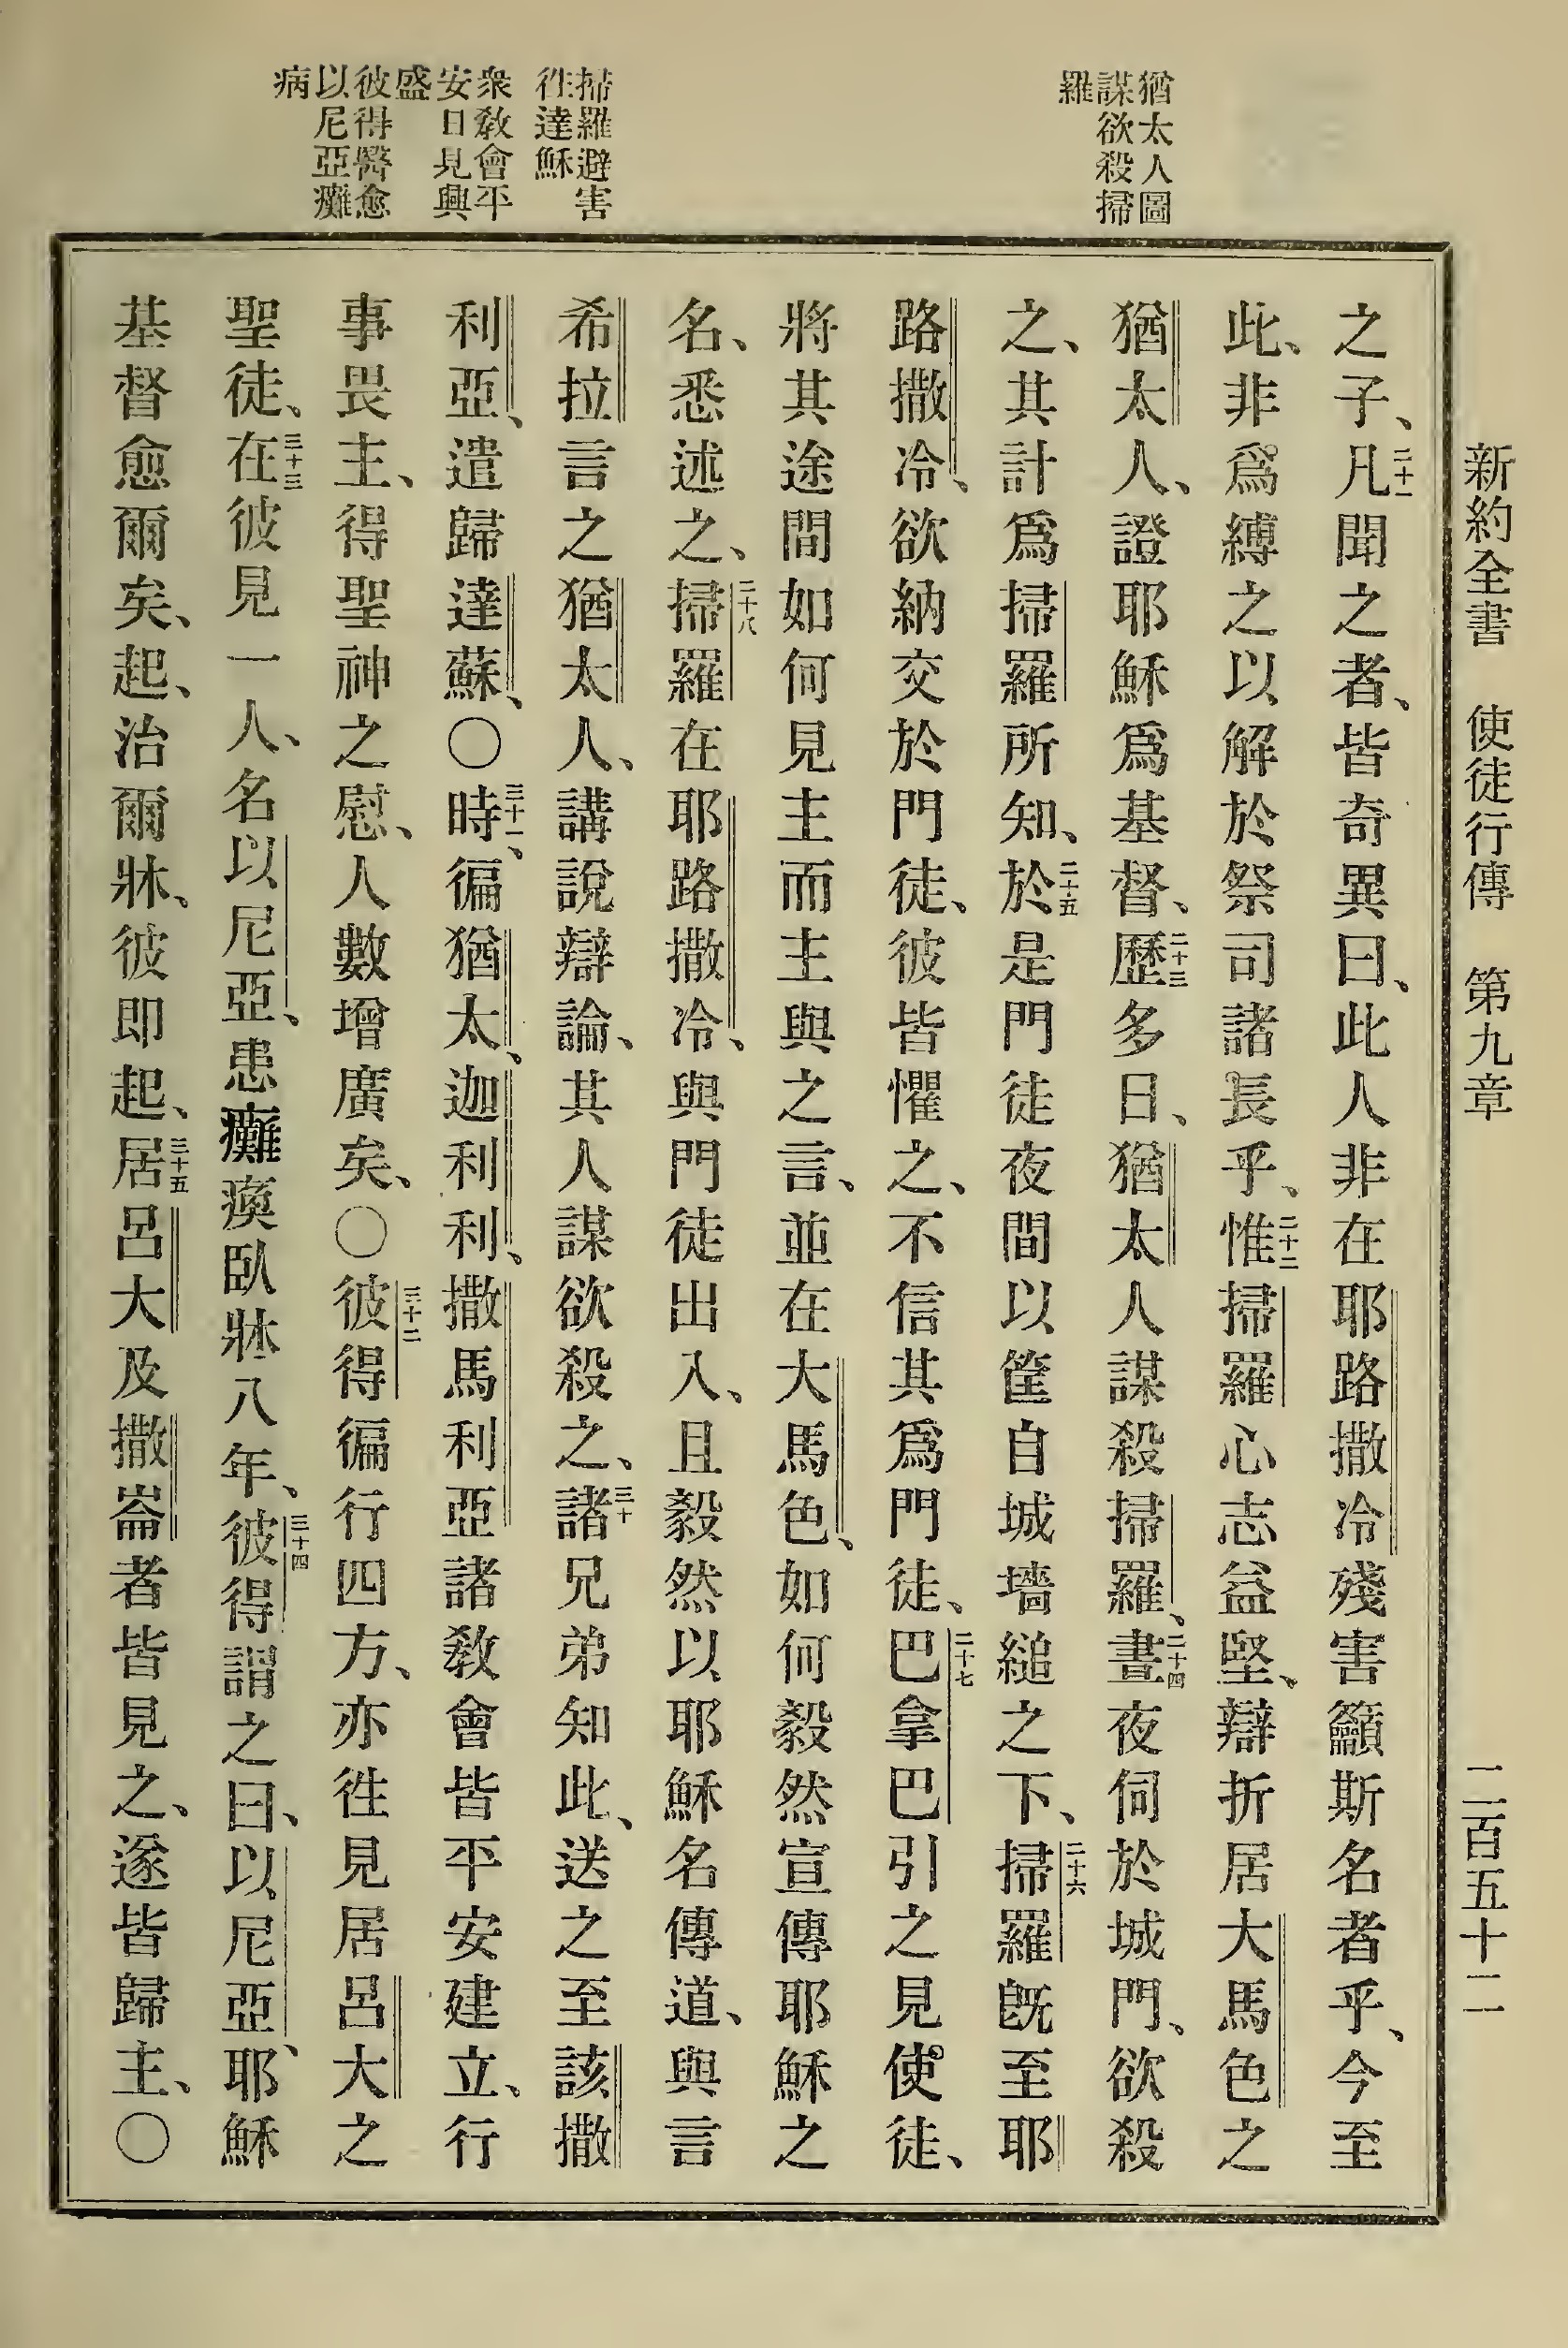 新約全書　使徒行傳　第九章　二百五十二
猶太人圖
謀欲殺掃
羅
掃羅避害
徃達穌
衆敎會平
安日見興
盛
彼得醫愈
以尼亞癱
病
之子、二十一凡聞之者、皆奇異曰、此人非在耶路撒冷殘害籲斯名者乎、今至
此、非爲縛之以解於祭司諸長乎、二十二惟掃羅心志益堅、辯折居大馬色之
猶太人、證耶穌爲基督、二十三歷多日、猶太人謀殺掃羅、二十四晝夜伺於城門、欲殺
之、其計爲掃羅所知、二十五於是門徒夜間以筐自城墻縋之下、二十六掃羅旣至耶
路撒冷、欲納交於門徒、彼皆懼之、不信其爲門徒、二十七巴拿巴引之見使徒、
將其途間如何見主而主與之言、並在大馬色、如何毅然宣傳耶穌之
名、悉述之、二十八掃羅在耶路撒冷、與門徒出入、且毅然以耶穌名傳道、與言
希拉言之猶太人、講說辯論、其人謀欲殺之、三十諸兄弟知此、送之至該撒
利亞、遣歸達蘇、〇三十一時、徧猶太、迦利利、撒馬利亞諸敎會皆平安建立、行
事畏主、得聖神之慰、人數增廣矣、〇三十二彼得徧行四方、亦徃見居呂大之
聖徒、三十三在彼見一人、名以尼亞、患癱瘓臥牀八年、三十四彼得謂之曰、以尼亞、耶穌
基督愈爾矣、起、治爾牀、彼即起、三十五居呂大及撒崙者皆見之、遂皆歸主、〇